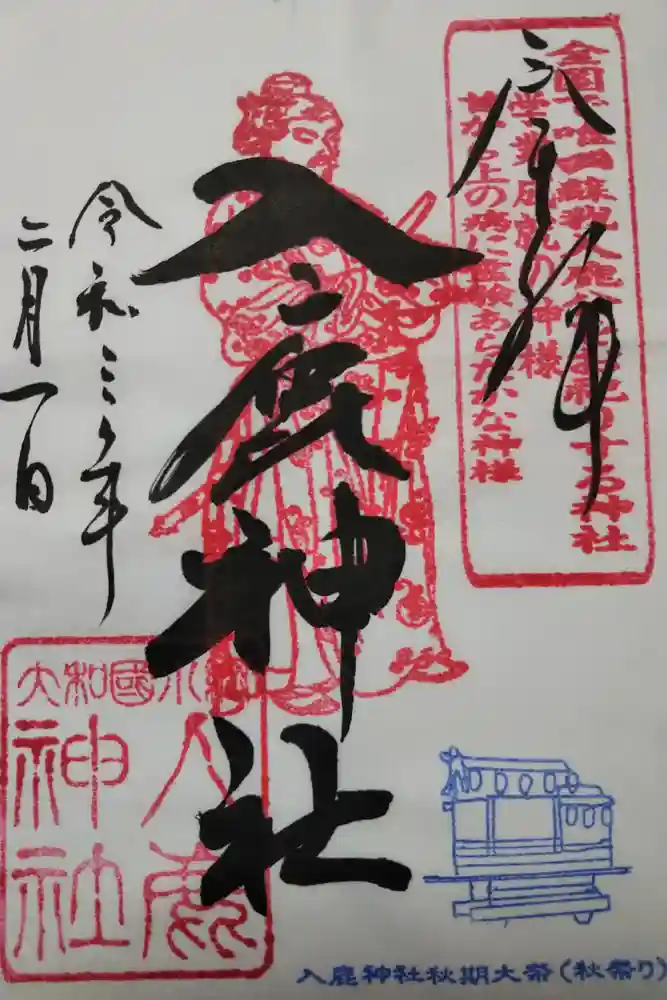 奉拝
全国で唯一蘇我入鹿公をお祀りする神社
学業成就の神様
首から上の病に霊験あらたかな神様
入鹿神社
令和三年
二月一日
大和國小綱
入鹿
神社
入鹿神社秋期大祭(秋祭り)